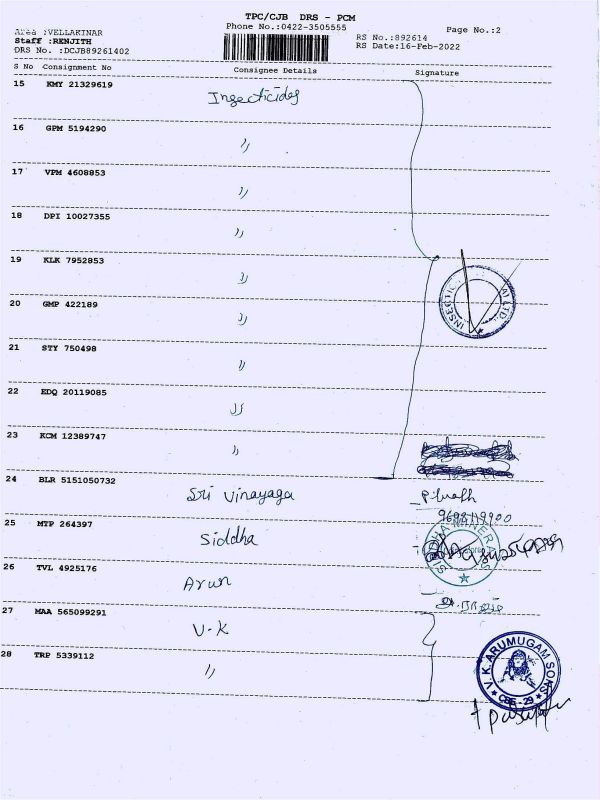 TPC/CJB DRS - PCM
Phone No.:0422-3505555
Page No.:2
Area :VELLAKINAR
Staff :RENJITH
DRS No. :DCJB89261402
RS No.:892614
RS Date:16-Feb-2022
S No Consignment No Consignee Details Signature
15 KMY 21329619 Insecticides
16 GPM 5194290 〃
17 VPM 4608853 〃
18 DPI 10027355 〃
19 KLK 7952853 〃
INSECTIC
20 GMP 422189 〃
21 STY 750498 〃
22 EDQ 20119085 〃
23 KCM 12389747 〃
24 BLR 5151050732 Sri Vinayaga
25 MTP 264397 Siddha
SIDDHA MINERALS
26 TVL 4925176 Arun
27 MAA 565099291 V-K
28 TRP 5339112 〃
V. K. ARUMUGAM SONS
CBE - 29